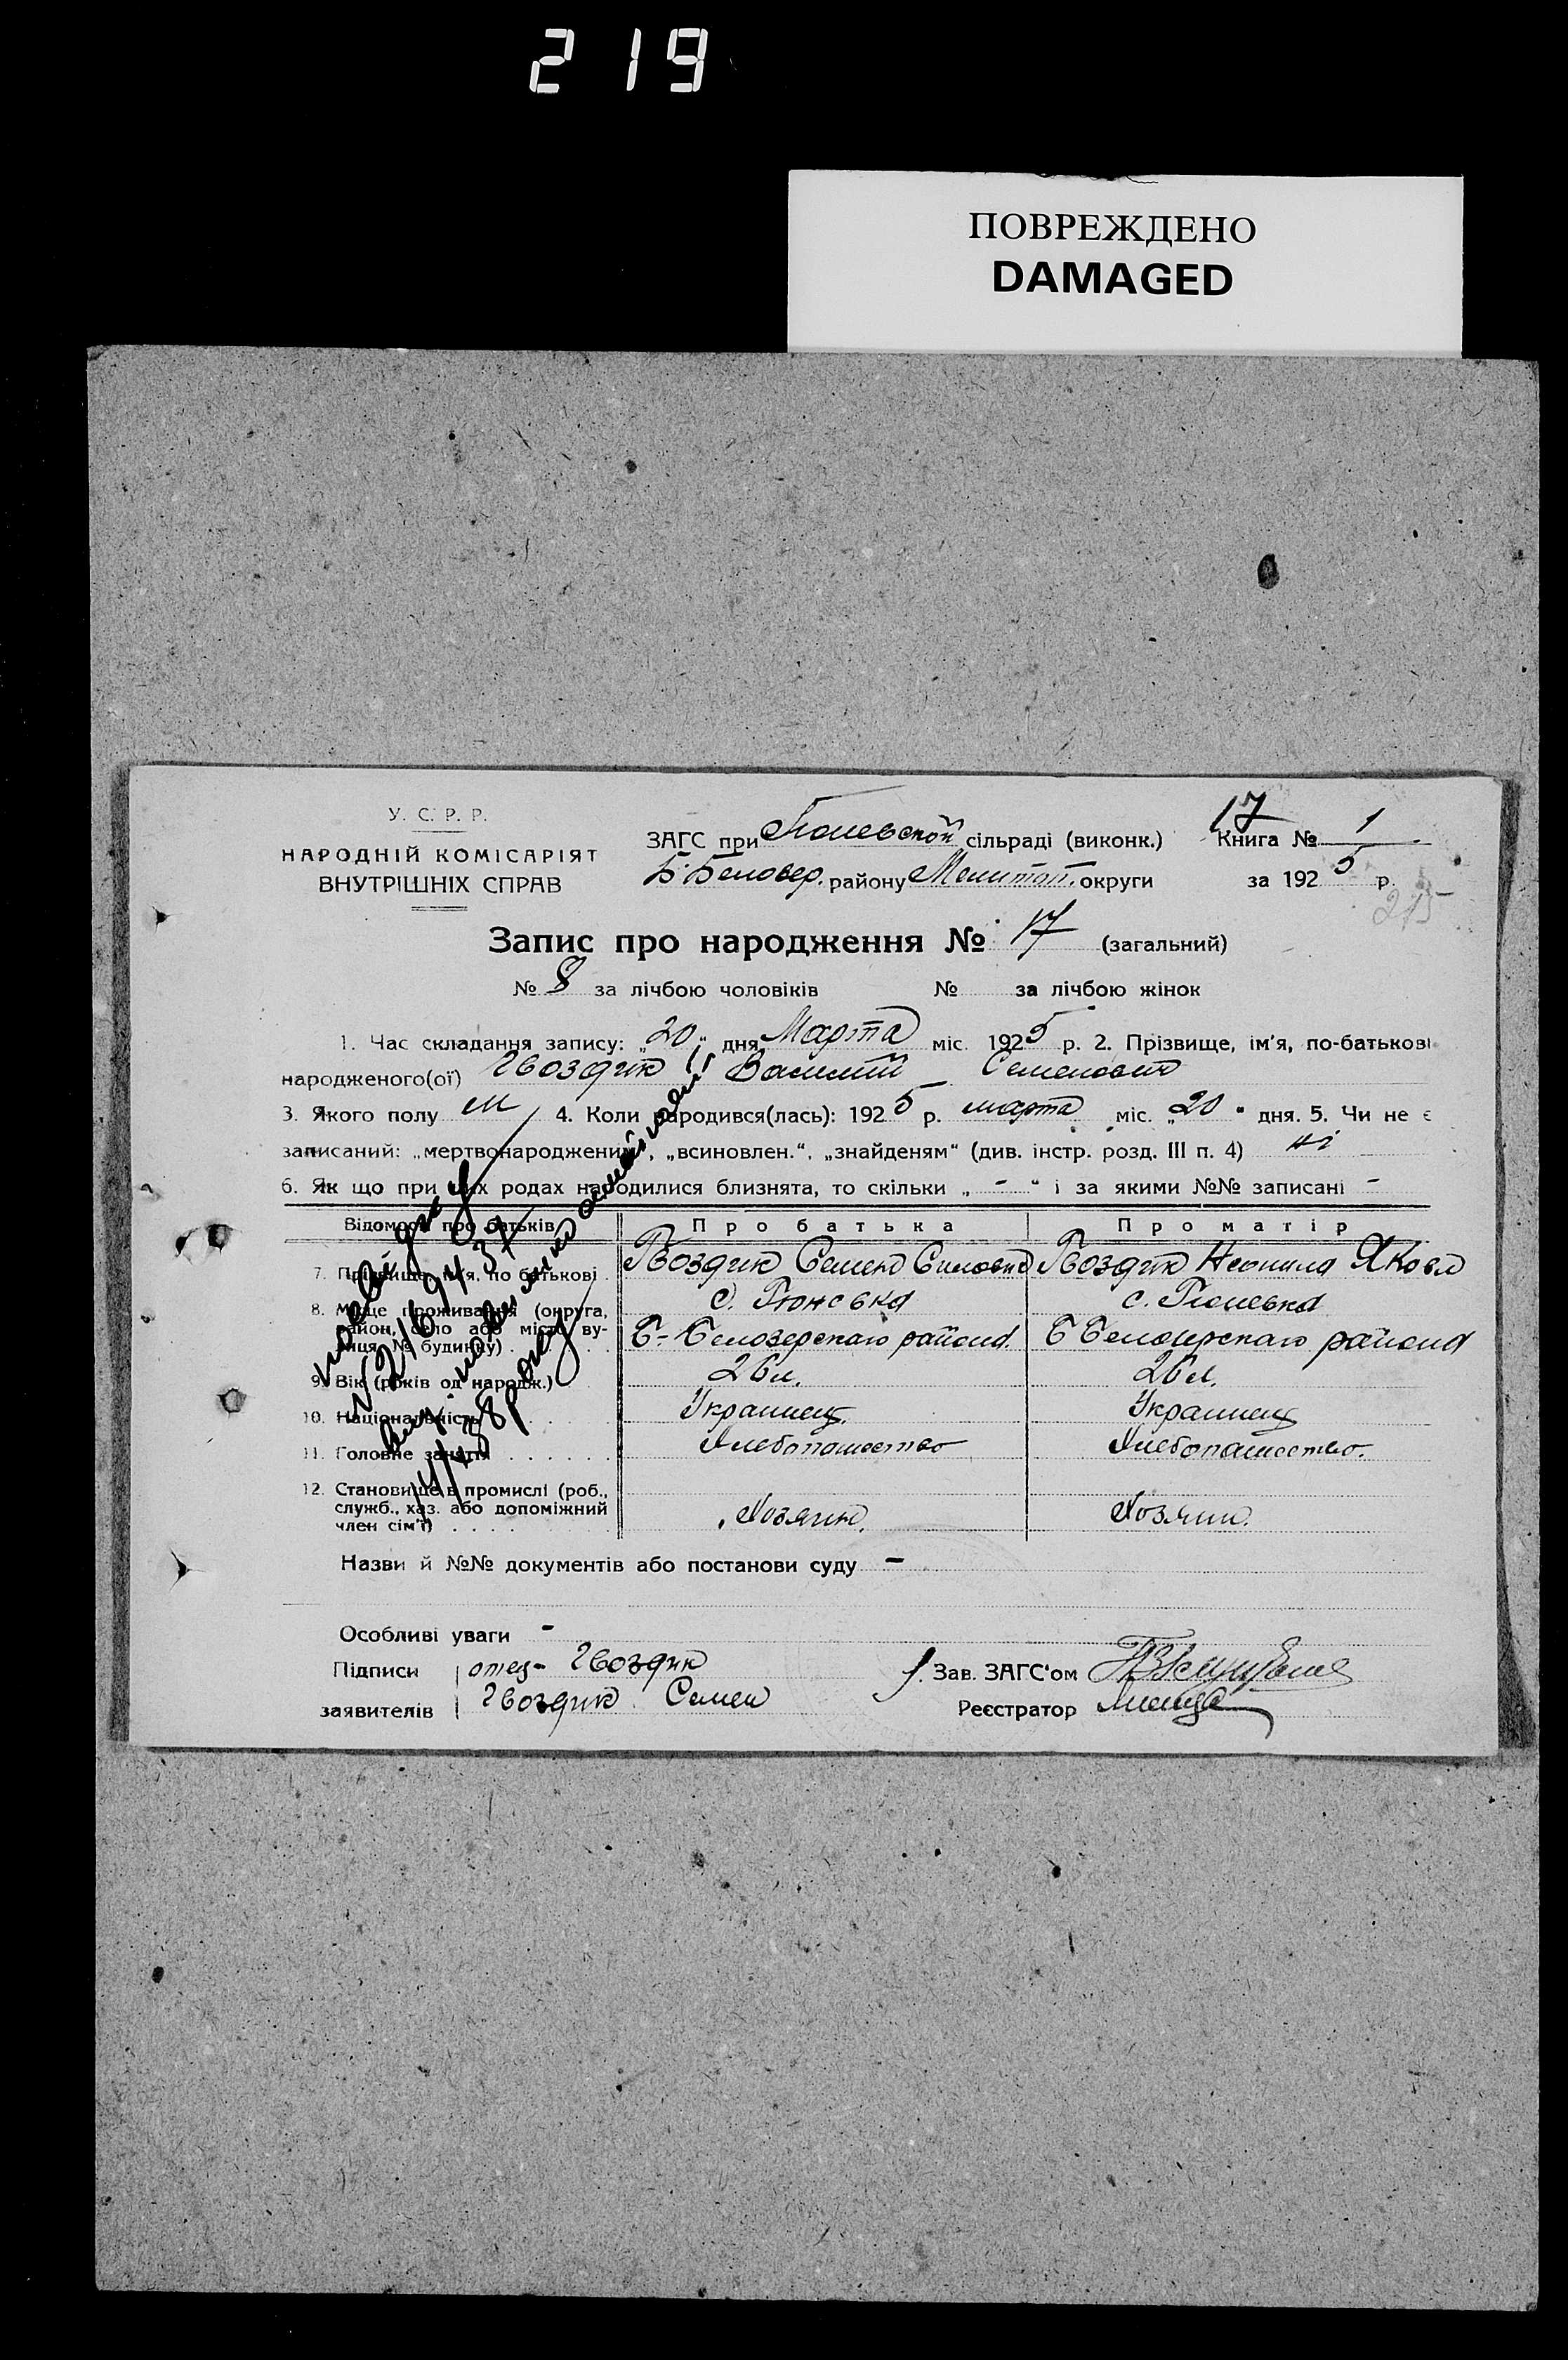 219
ПОВРЕЖДЕНО
DAMAGED
У. С. Р. Р.
НАРОДНІЙ КОМІСАРІЯТ
ВНУТРІШНІХ СПРАВ
ЗАГС при сільраді (виконк.)
Б. Белозер. району Мелитоп. округи
17
Книга № 1
за 1925 р.
215
Запис про народження № 17 (загальний)
№ 8 за лічбою чоловіків № за лічбою жінок
1. Час складання запису: „20" дня Марта міс. 1925 р. 2. Прізвище, ім'я, по-батькові
народженого(ої) Гвоздик Василий Семенович
3. Якого полу М 4. Коли народився(лась): 1925 р. марта міс. „20" дня. 5. Чи не є
записаний: „мертвонародженим", „всиновлен.", „знайденям" (див. інстр. розд. III п. 4) ні
6. Як що при цих родах народилися близнята, то скільки „-" і за якими №№ записані -
Відомості про батьків Про батька Про матір
7. Прізвище, ім'я, по батькові Гвоздик Семен Гвоздик Неонила Яковл
8. Місце проживання (округа, район, село або місто вулиця, № будинку) с. с.
Б-Белозерскаго района Б Белозерскаго района
9. Вік (років од народж.) 26 л. 26 л.
10. Національність Украинец Украинец
11. Головне заняття Хлебопашество Хлебопашество.
12. Становище в промислі (роб., служб., хаз. або допоміжний член сім'ї) Хозяин. Хозяин.
Назви й №№ документів або постанови суду -
Особливі уваги -
Підписи отец - Гвоздик Зав. ЗАГС'ом
заявителів Гвоздик Семен Реєстратор